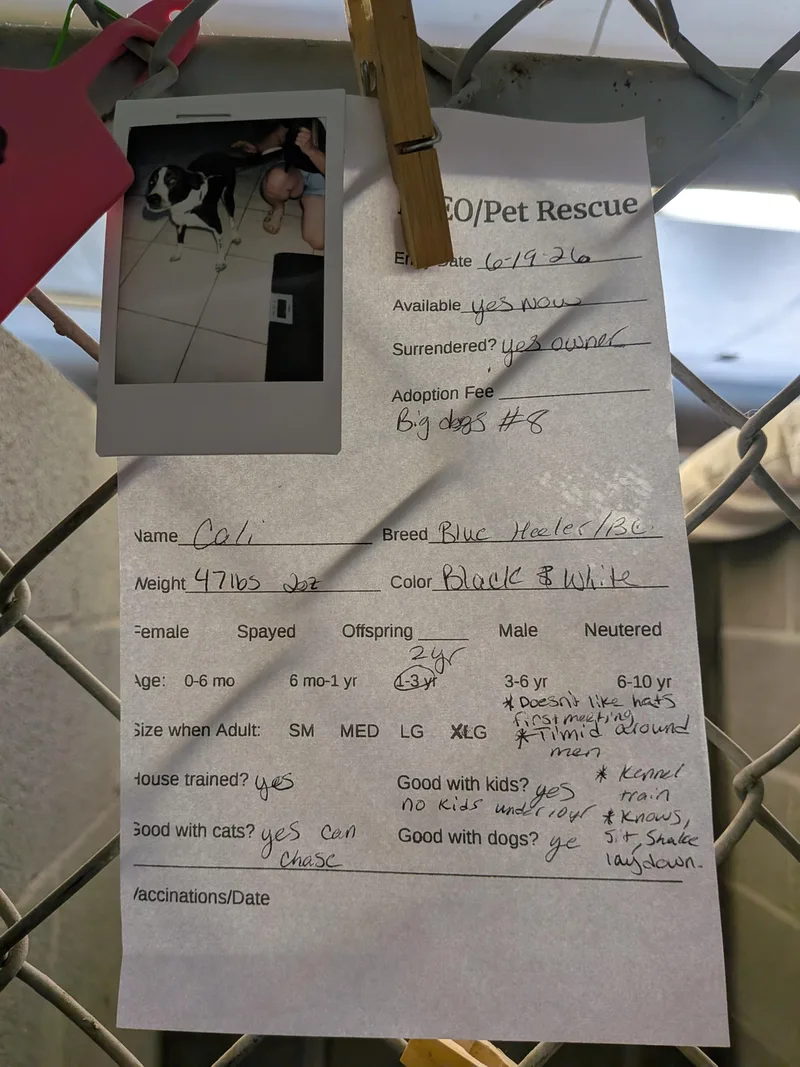 EO/Pet Rescue
Date 6-19-26
Available yes now
Surrendered? yes owner
Adoption Fee
Big dogs #8
Name Cali Breed Blue Heeler/BC.
Weight 47lbs 2oz Color Black & White
Female Spayed Offspring ____ Male Neutered
2yr
Age: 0-6 mo 6 mo-1 yr 1-3 yr 3-6 yr 6-10 yr
* Doesn't like hats
first meeting
Size when Adult: SM MED LG XLG * Timid around
men
House trained? yes Good with kids? yes * Kennel
no kids under 10yr train
Good with cats? yes can Good with dogs? ye * Knows,
chase Sit, Shake
laydown.
Vaccinations/Date